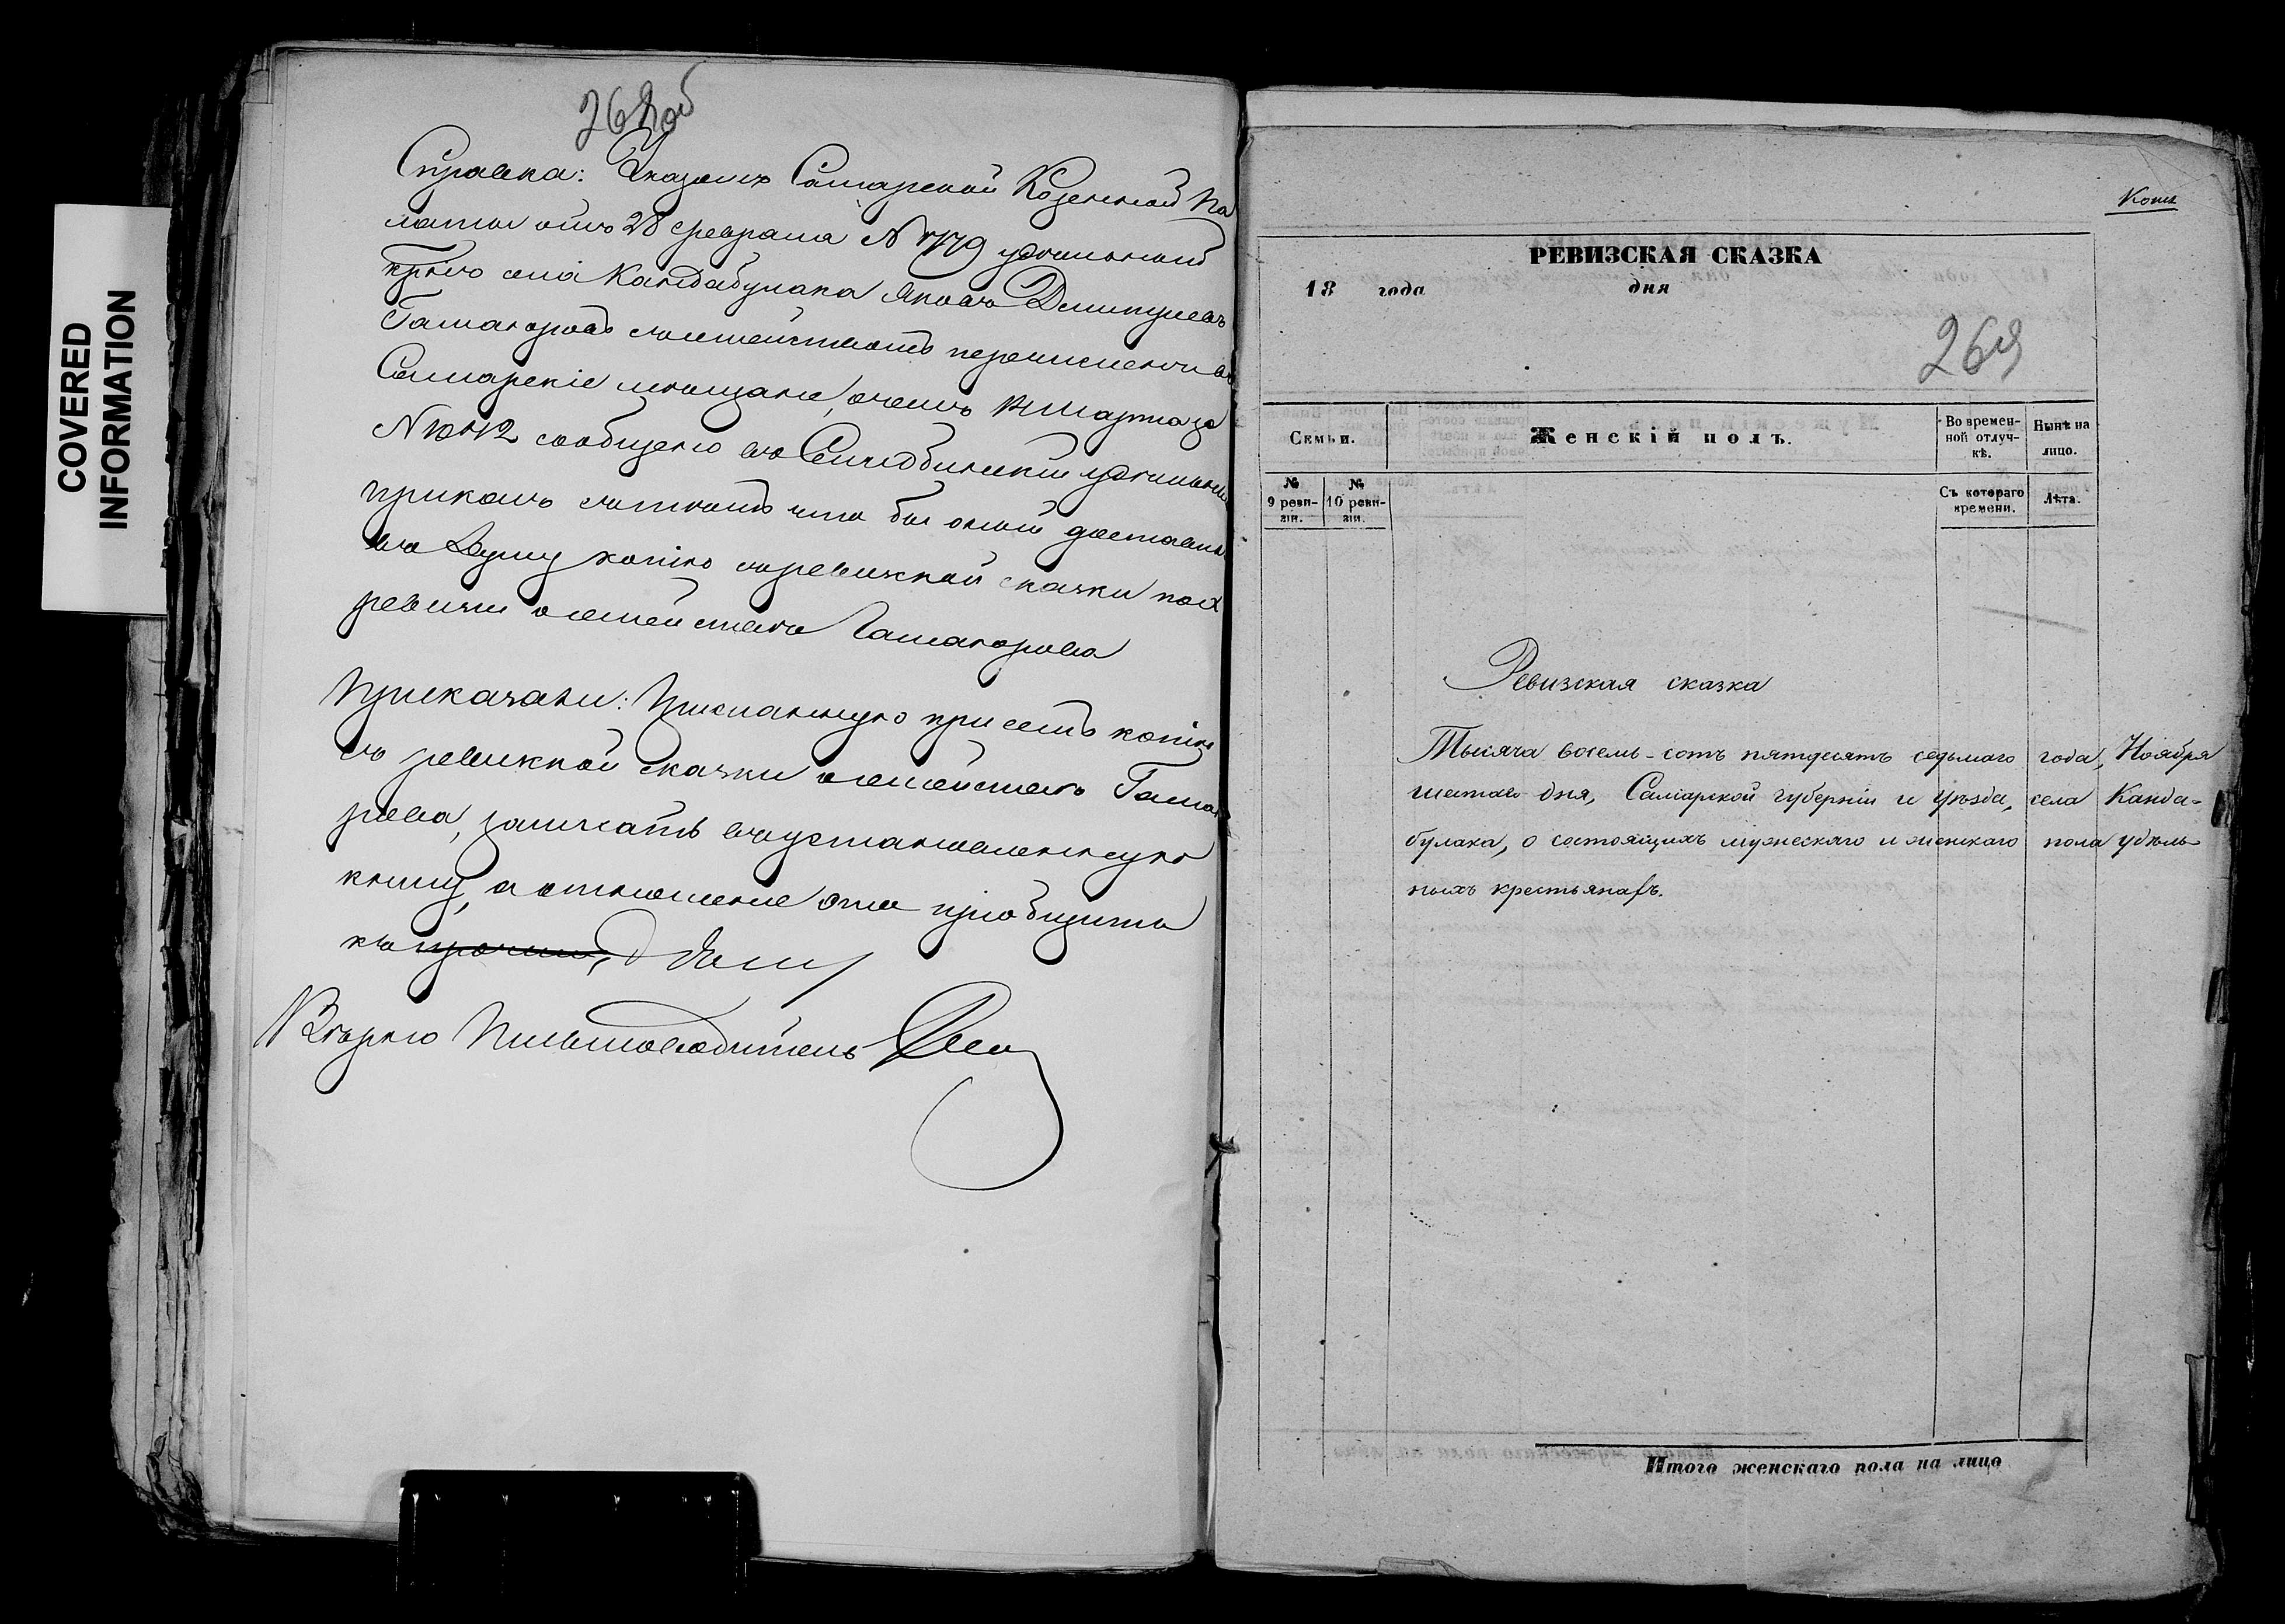 COVERED
INFORMATION
268об
Справка: Указомъ Самарской Казенной Па
латы отъ 28 февраля № 1779 удѣльный
крнъ села Кандабулака Яковъ Дмитріевъ
съ семействомъ перечисленъ въ
Самарскіе мѣщане, о чемъ 14 марта за
№ сообщено въ удѣльный
приказъ съ тѣмъ что бы оный доставилъ
въ Думу копію съ ревизкой сказки по X
ревизіи о семействѣ
Приказали: Присланную при семъ копію
съ ревизкой сказки о семействѣ
рова, записать въ установленную
книгу, а отношеніе это пріобщить
къ дѣлу
Вѣрно Письмоводитель
Копія
РЕВИЗСКАЯ СКАЗКА
18 года дня
269
Семьи. Женскій полъ. Во времен-ной отлуч-кѣ. Нынѣ на лицо.
№ 9 реви-зіи. № 10 реви-зіи. Съ котораго времени. Лѣта.
Ревизская сказка
Тысяча восемь-сотъ пятдесятъ седьмаго года, Ноября
шестаго дня, Самарской губерніи и уѣзда, села Канда-
булака, о состоящихъ мужескаго и женскаго пола удѣль-
ныхъ крестьянахъ.
Итого женскаго пола на лицо